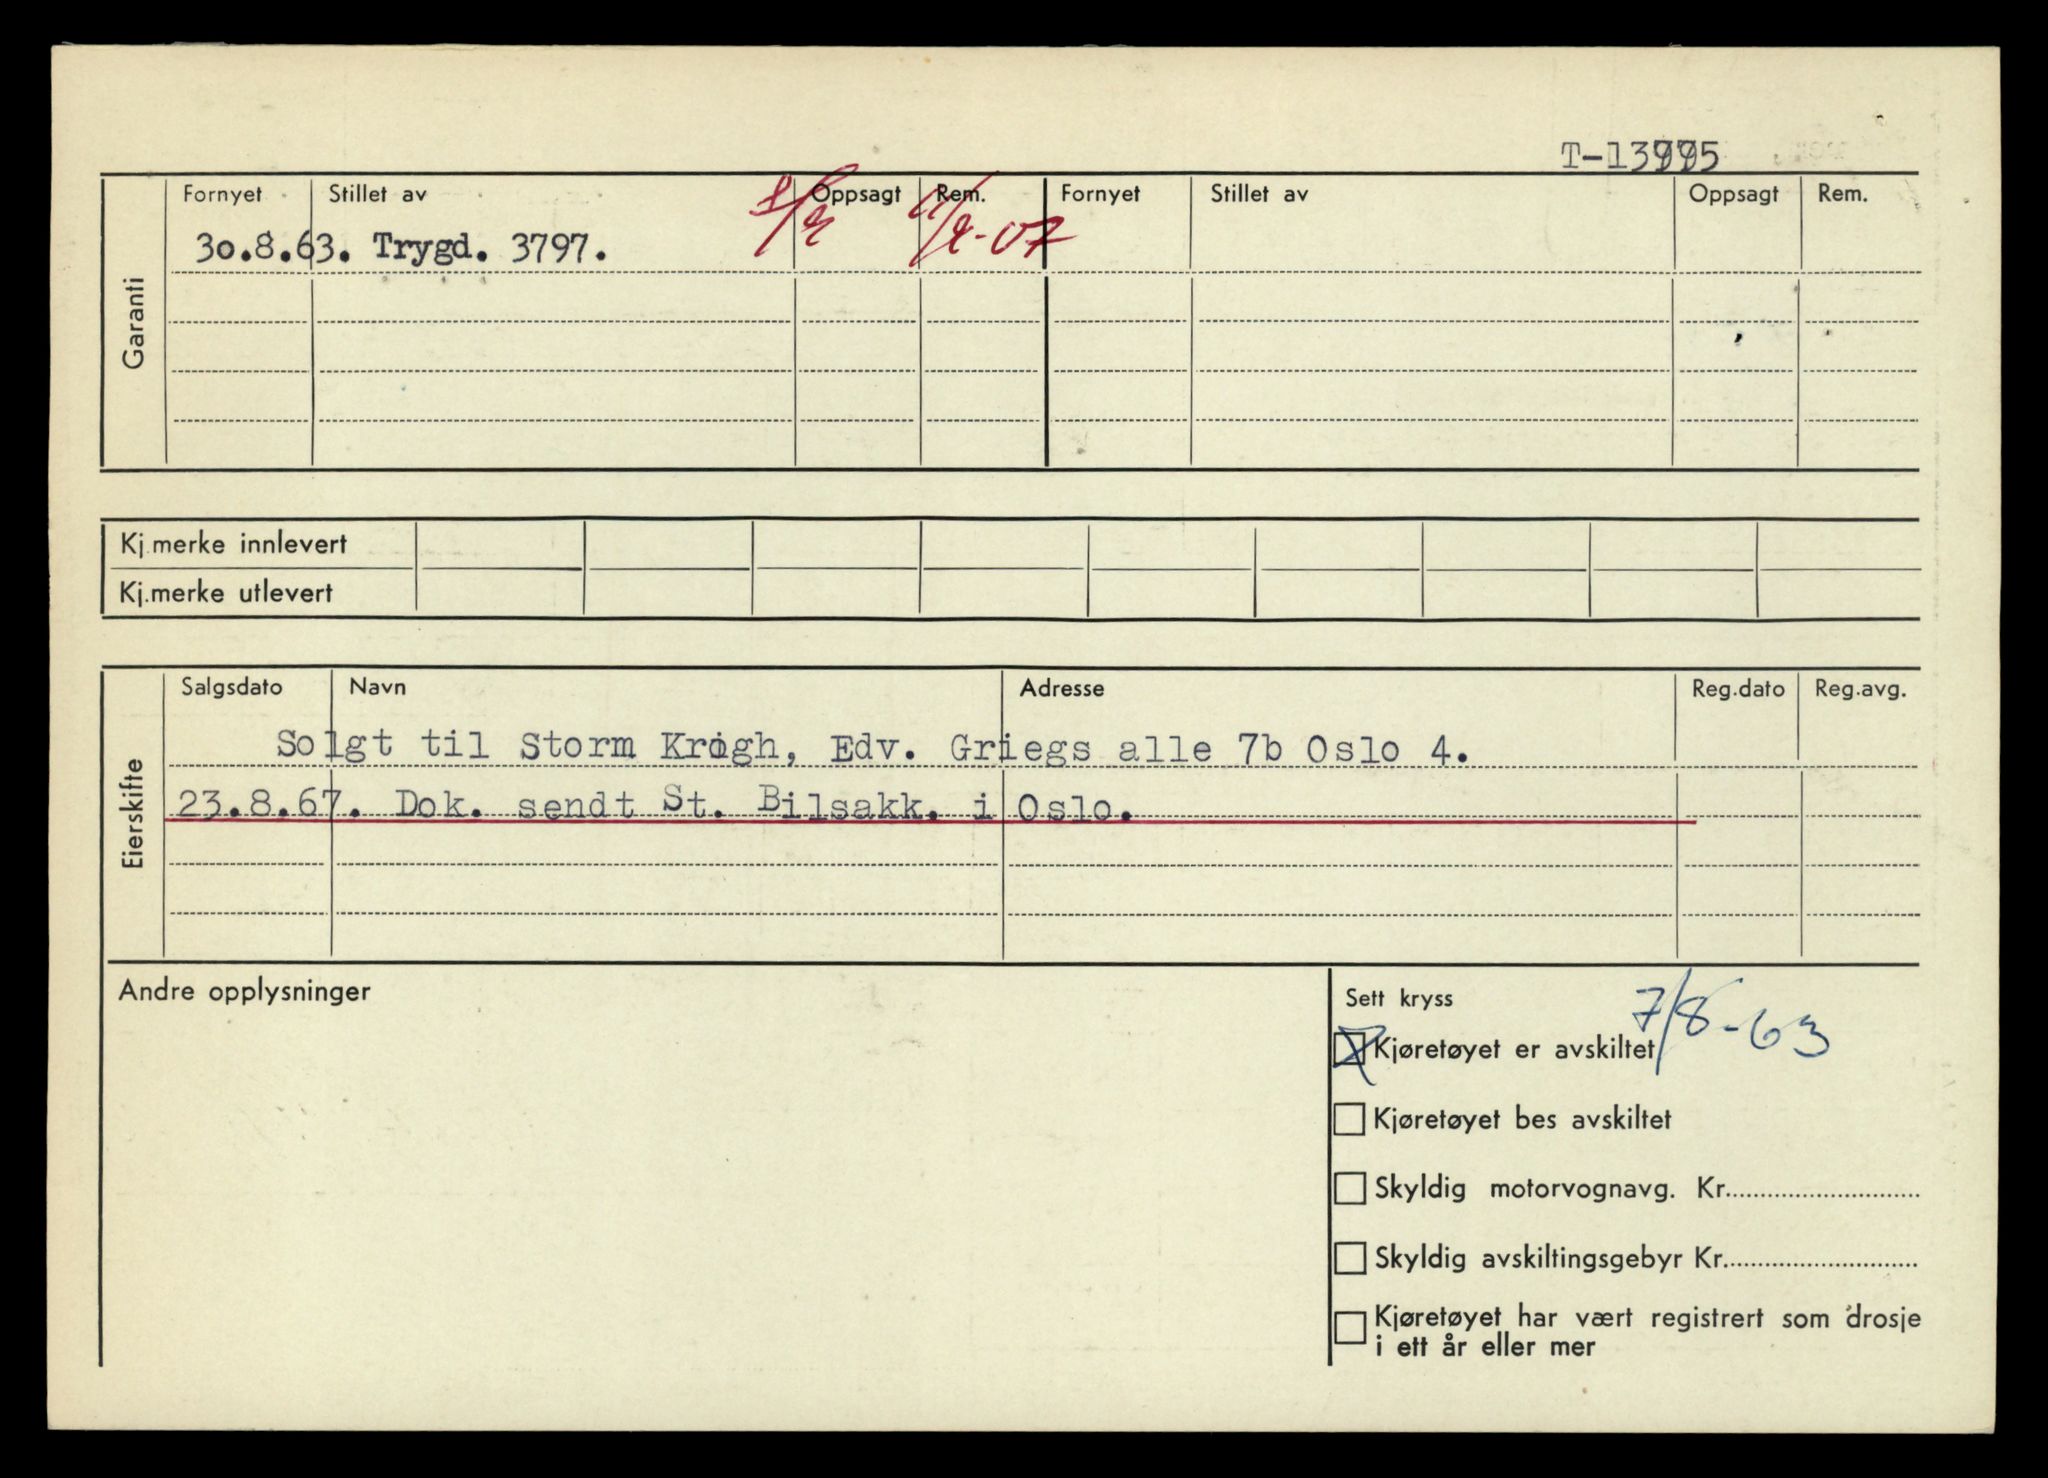 Fornyet Stillet av Oppsagt Rem. Fornyet Stillet av Oppsagt Rem.
30.8.63. Trygd. 3797.
Garanti
Kj.merke innlevert
Kj.merke utlevert
Salgsdato Navn Adresse Reg.dato Reg.avg.
Solgt til Storm Krogh, Edv. Griegs alle 7b Oslo 4.
23.8.67. Dok. sendt St. Bilsakk. i Oslo.
Eierskifte
Andre opplysninger
Sett kryss 7/8-63
Kjøretøyet er avskiltet
Kjøretøyet bes avskiltet
Skyldig motorvognavg. Kr.
Skyldig avskiltingsgebyr Kr.
Kjøretøyet har vært registrert som drosje
i ett år eller mer